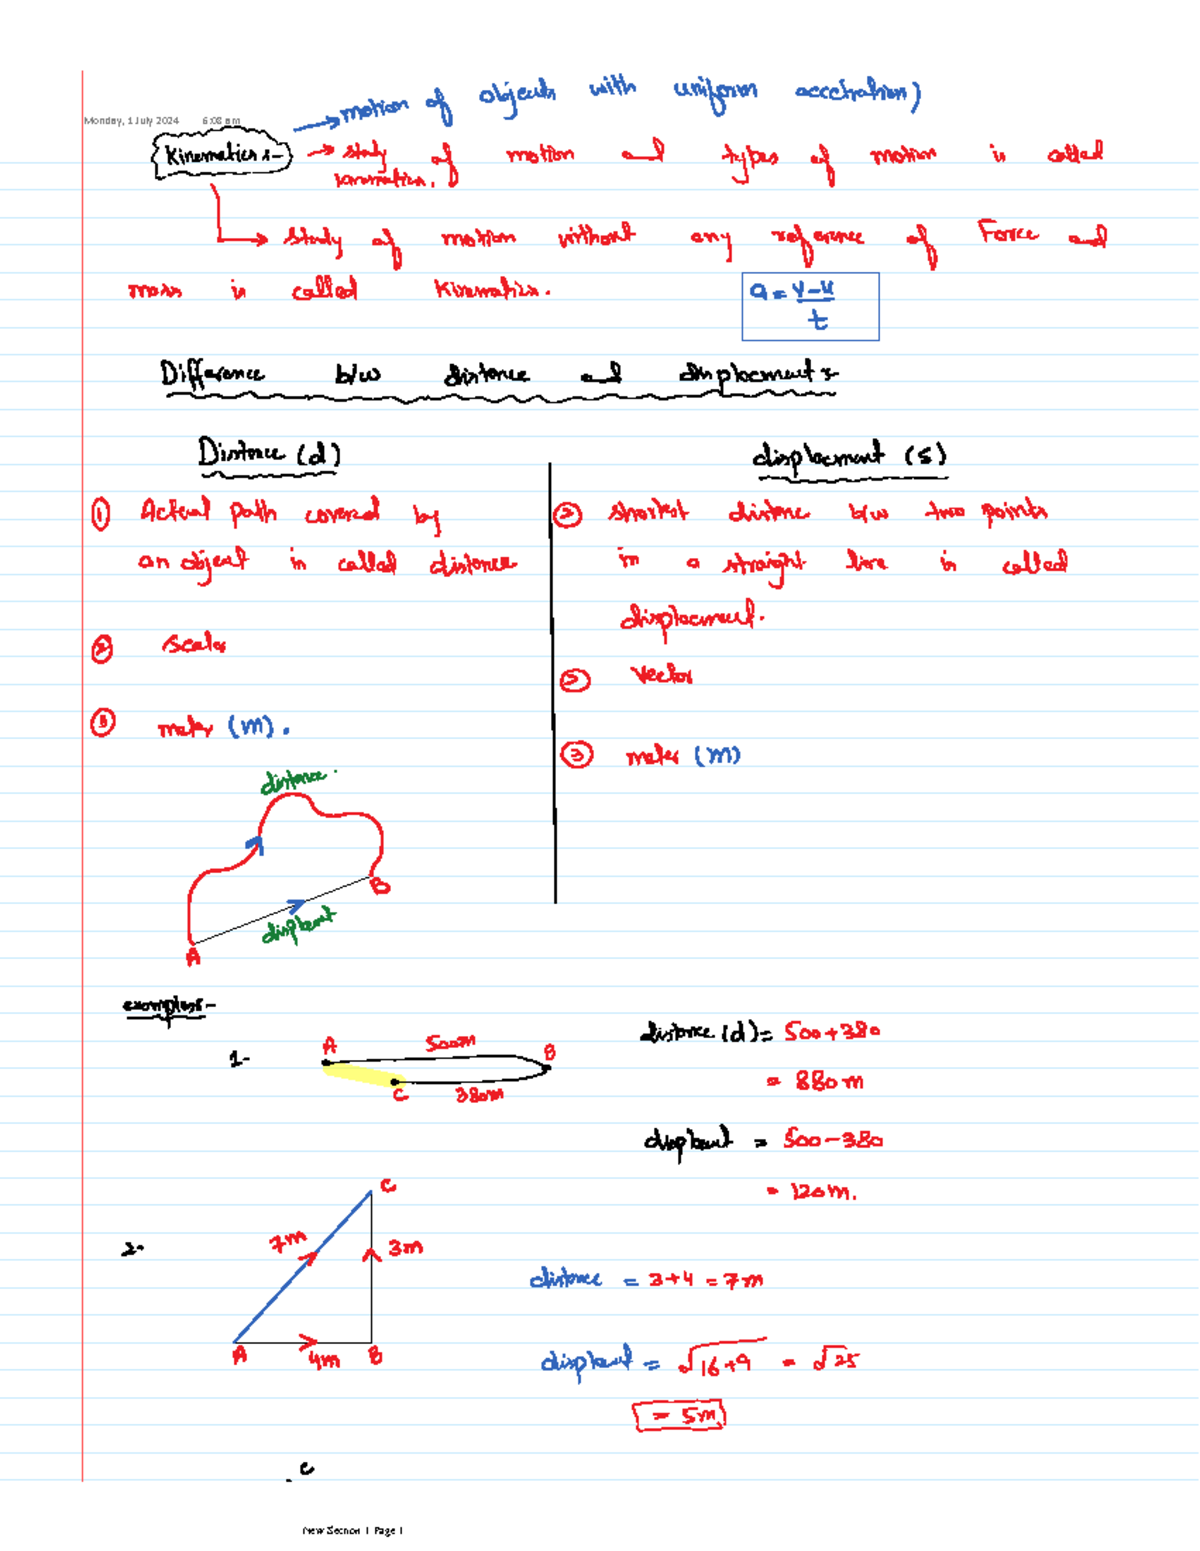 → motion of objects with uniform acceleration)
Monday, 1 July 2024 6:08 am
Kinematics :- → study of motion and types of motion is called
kinematics.
→ study of motion without any reference of Force and
mass is called Kinematics.
a = v-u
t
Difference b/w distance and displacement :-
Distance (d)
displacement (s)
① Actual path covered by
an object is called distance
② scalar
③ meter (m).
① shortest distance b/w two points
in a straight line is called
displacement.
② vector
③ meter (m)
distance.
B
displacement
A
examples:-
1-
A 500m B
C 380m
distance (d) = 500+380
= 880m
displacement = 500-380
= 120m.
2-
C
7m 3m
A 4m B
distance = 3+4 = 7m
displacement = √16+9 = √25
= 5m
C
New Section 1 Page 1